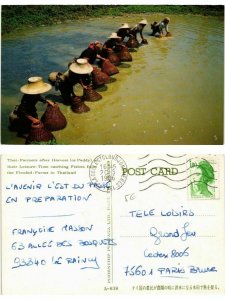 Thai-Farmers after Harvest (or Paddy)
their Leisure-Time catching Fishes from
the Flooded-Farmt in Thailand
POST CARD
L'AVENIR C'EST DU PASSÉ
EN PREPARATION
FRANÇOISE MASSON
63 ALLEE DES BOSQUETS
93340 LE RAINCY
TELE LOISIRS
Grand Jeu
Cedex 8006
75601 PARIS BRUNE
A-639